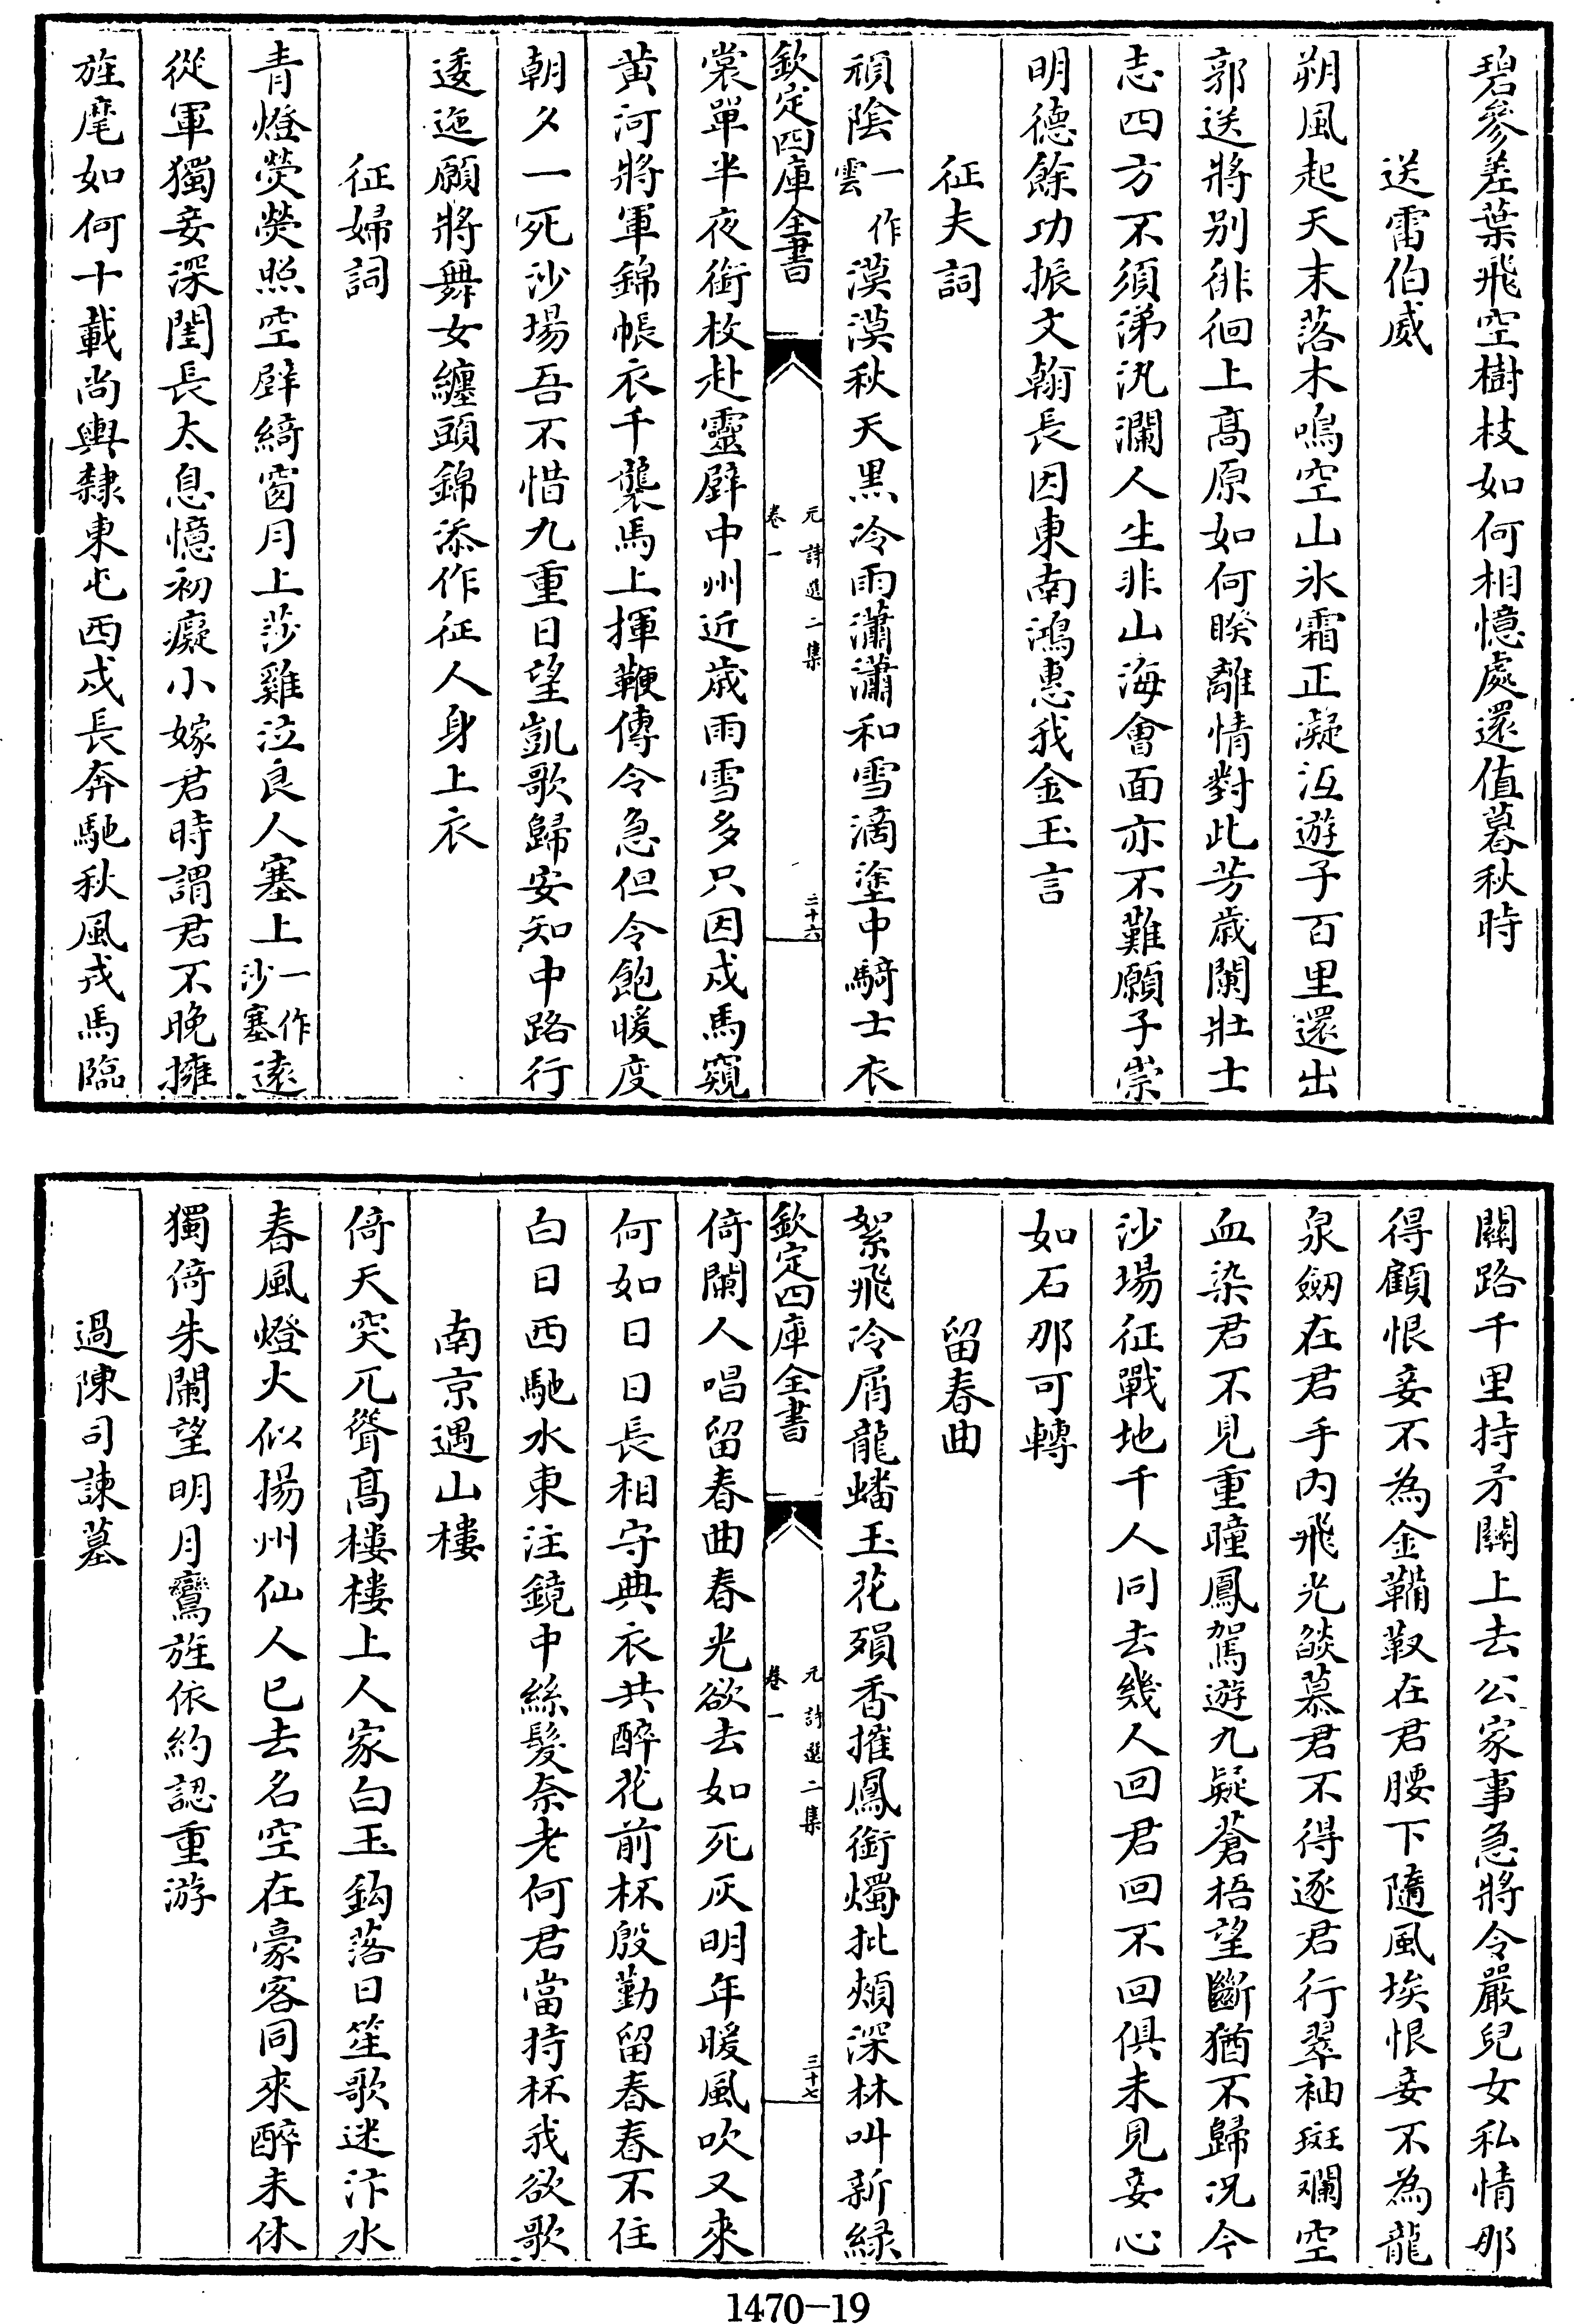 碧參差葉飛空樹枝如何相憶處還值暮秋時
送雷伯威
朔風起天末落木鳴空山氷霜正凝沍遊子百里還出
郭送將别徘徊上髙原如何睽離情對此芳歲闌壯士
志四方不須涕汍瀾人生非山海會面亦不難願子崇
明德餘功振文翰長因東南鴻惠我金玉言
征夫詞
頑陰一作雲漠漠秋天黒冷雨瀟瀟和雪滴塗中騎士衣
欽定四庫全書
元詩選二集
卷一
二十六
裳單半夜銜枚赴靈壁中州近歲雨雪多只因戍馬窺
黄河將軍錦帳衣千襲馬上揮鞭傳令急但令飽暖度
朝夕一死沙場吾不惜九重日望凱歌歸安知中路行
逶迤願將舞女纏頭錦添作征人身上衣
征婦詞
青燈熒熒照空壁綺窗月上莎雞泣良人塞上一作沙塞逺
從軍獨妾深閨長太息憶初癡小嫁君時謂君不晚擁
旌麾如何十載尚輿隸東屯西戍長奔馳秋風戎馬臨
關路千里持矛關上去公家事急將令嚴兒女私情那
得顧恨妾不為金鞴靫在君腰下隨風埃恨妾不為龍
泉劒在君手内飛光燄慕君不得逐君行翠袖斑斕空
血染君不見重瞳鳳駕遊九疑蒼梧望斷猶不歸况今
沙塲征戰地千人同去幾人回君回不回俱未見妾心
如石那可轉
留春曲
絮飛冷屑龍蟠玉花殞香摧鳳銜燭批頰深林叫新緑
欽定四庫全書
元詩選二集
卷一
三十七
倚闌人唱留春曲春光欲去如死灰明年暖風吹又來
何如日日長相守典衣共醉花前杯殷勤留春春不住
白日西馳水東注鏡中絲髮奈老何君當持杯我欲歌
南京遇山樓
倚天突兀聳髙樓樓上人家白玉鈎落日笙歌迷汴水
春風燈火似揚州仙人已去名空在豪客同來醉未休
獨倚朱闌望明月鸞旌依約認重游
過陳司諫墓
1470-19